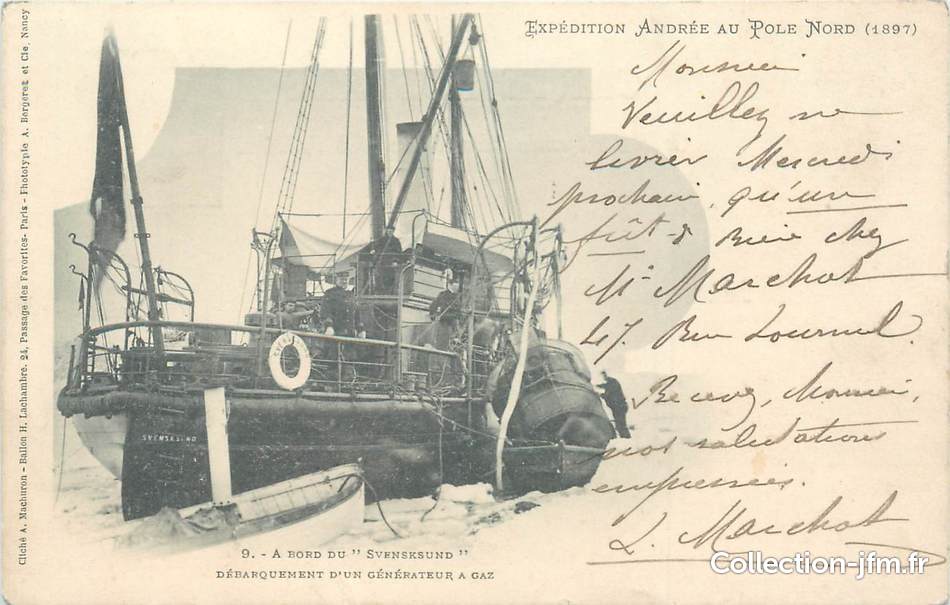 Expédition Andrée au Pole Nord (1897)
Monsieur
Veuillez ne
livrer Mercredi
prochain, qu'un
fût de Bière chez
Mr Marchot
47 Rue Tournel.
Recevez, Monsieur,
nos salutations
empressées.
L. Marchot
SVENSKSUND
9. - A bord du "Svensksund"
débarquement d'un générateur a gaz
Cliché A. Machuron - Ballon H. Lachambre, 24, Passage des Favorites - Paris - Phototypie A. Bergeret et Cie, Nancy
Collection-jfm.fr